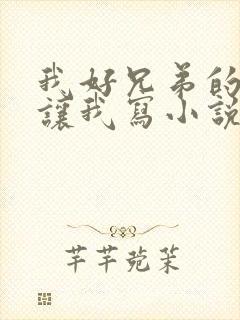 我好兄弟的
讓我寫小說
芊芊菀茉